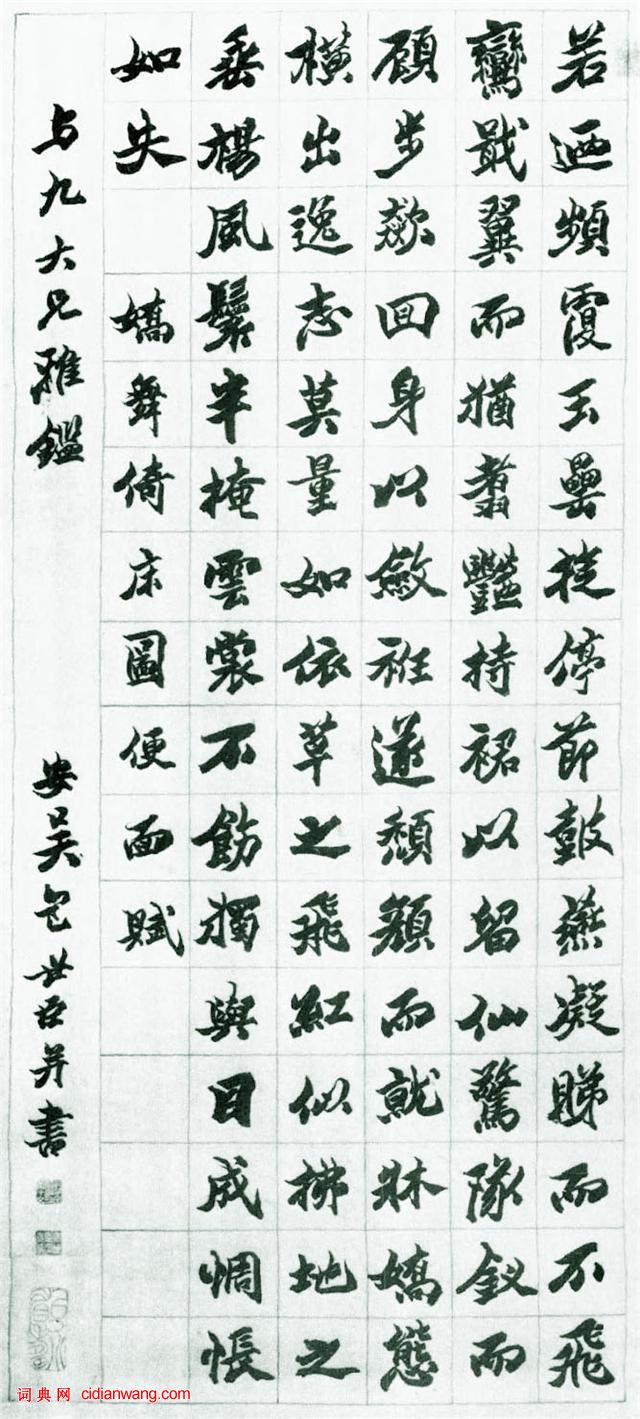 若迺頻覆玉罍徙停節鼓燕凝睇而不飛
鸞戢翼而猶翥豔持裙以留仙驚隊釵而
顧步欻回身以斂袵遂頳顏而就牀嬌態
橫出逸志莫量如依草之飛紅似拂地之
垂楊風鬟半掩雲裳不飭獨與目成惆悵
如失 嬌舞倚床圖便面賦
与九大兄雅鑑 安吳包世臣并書
词典网 cidianwang.com